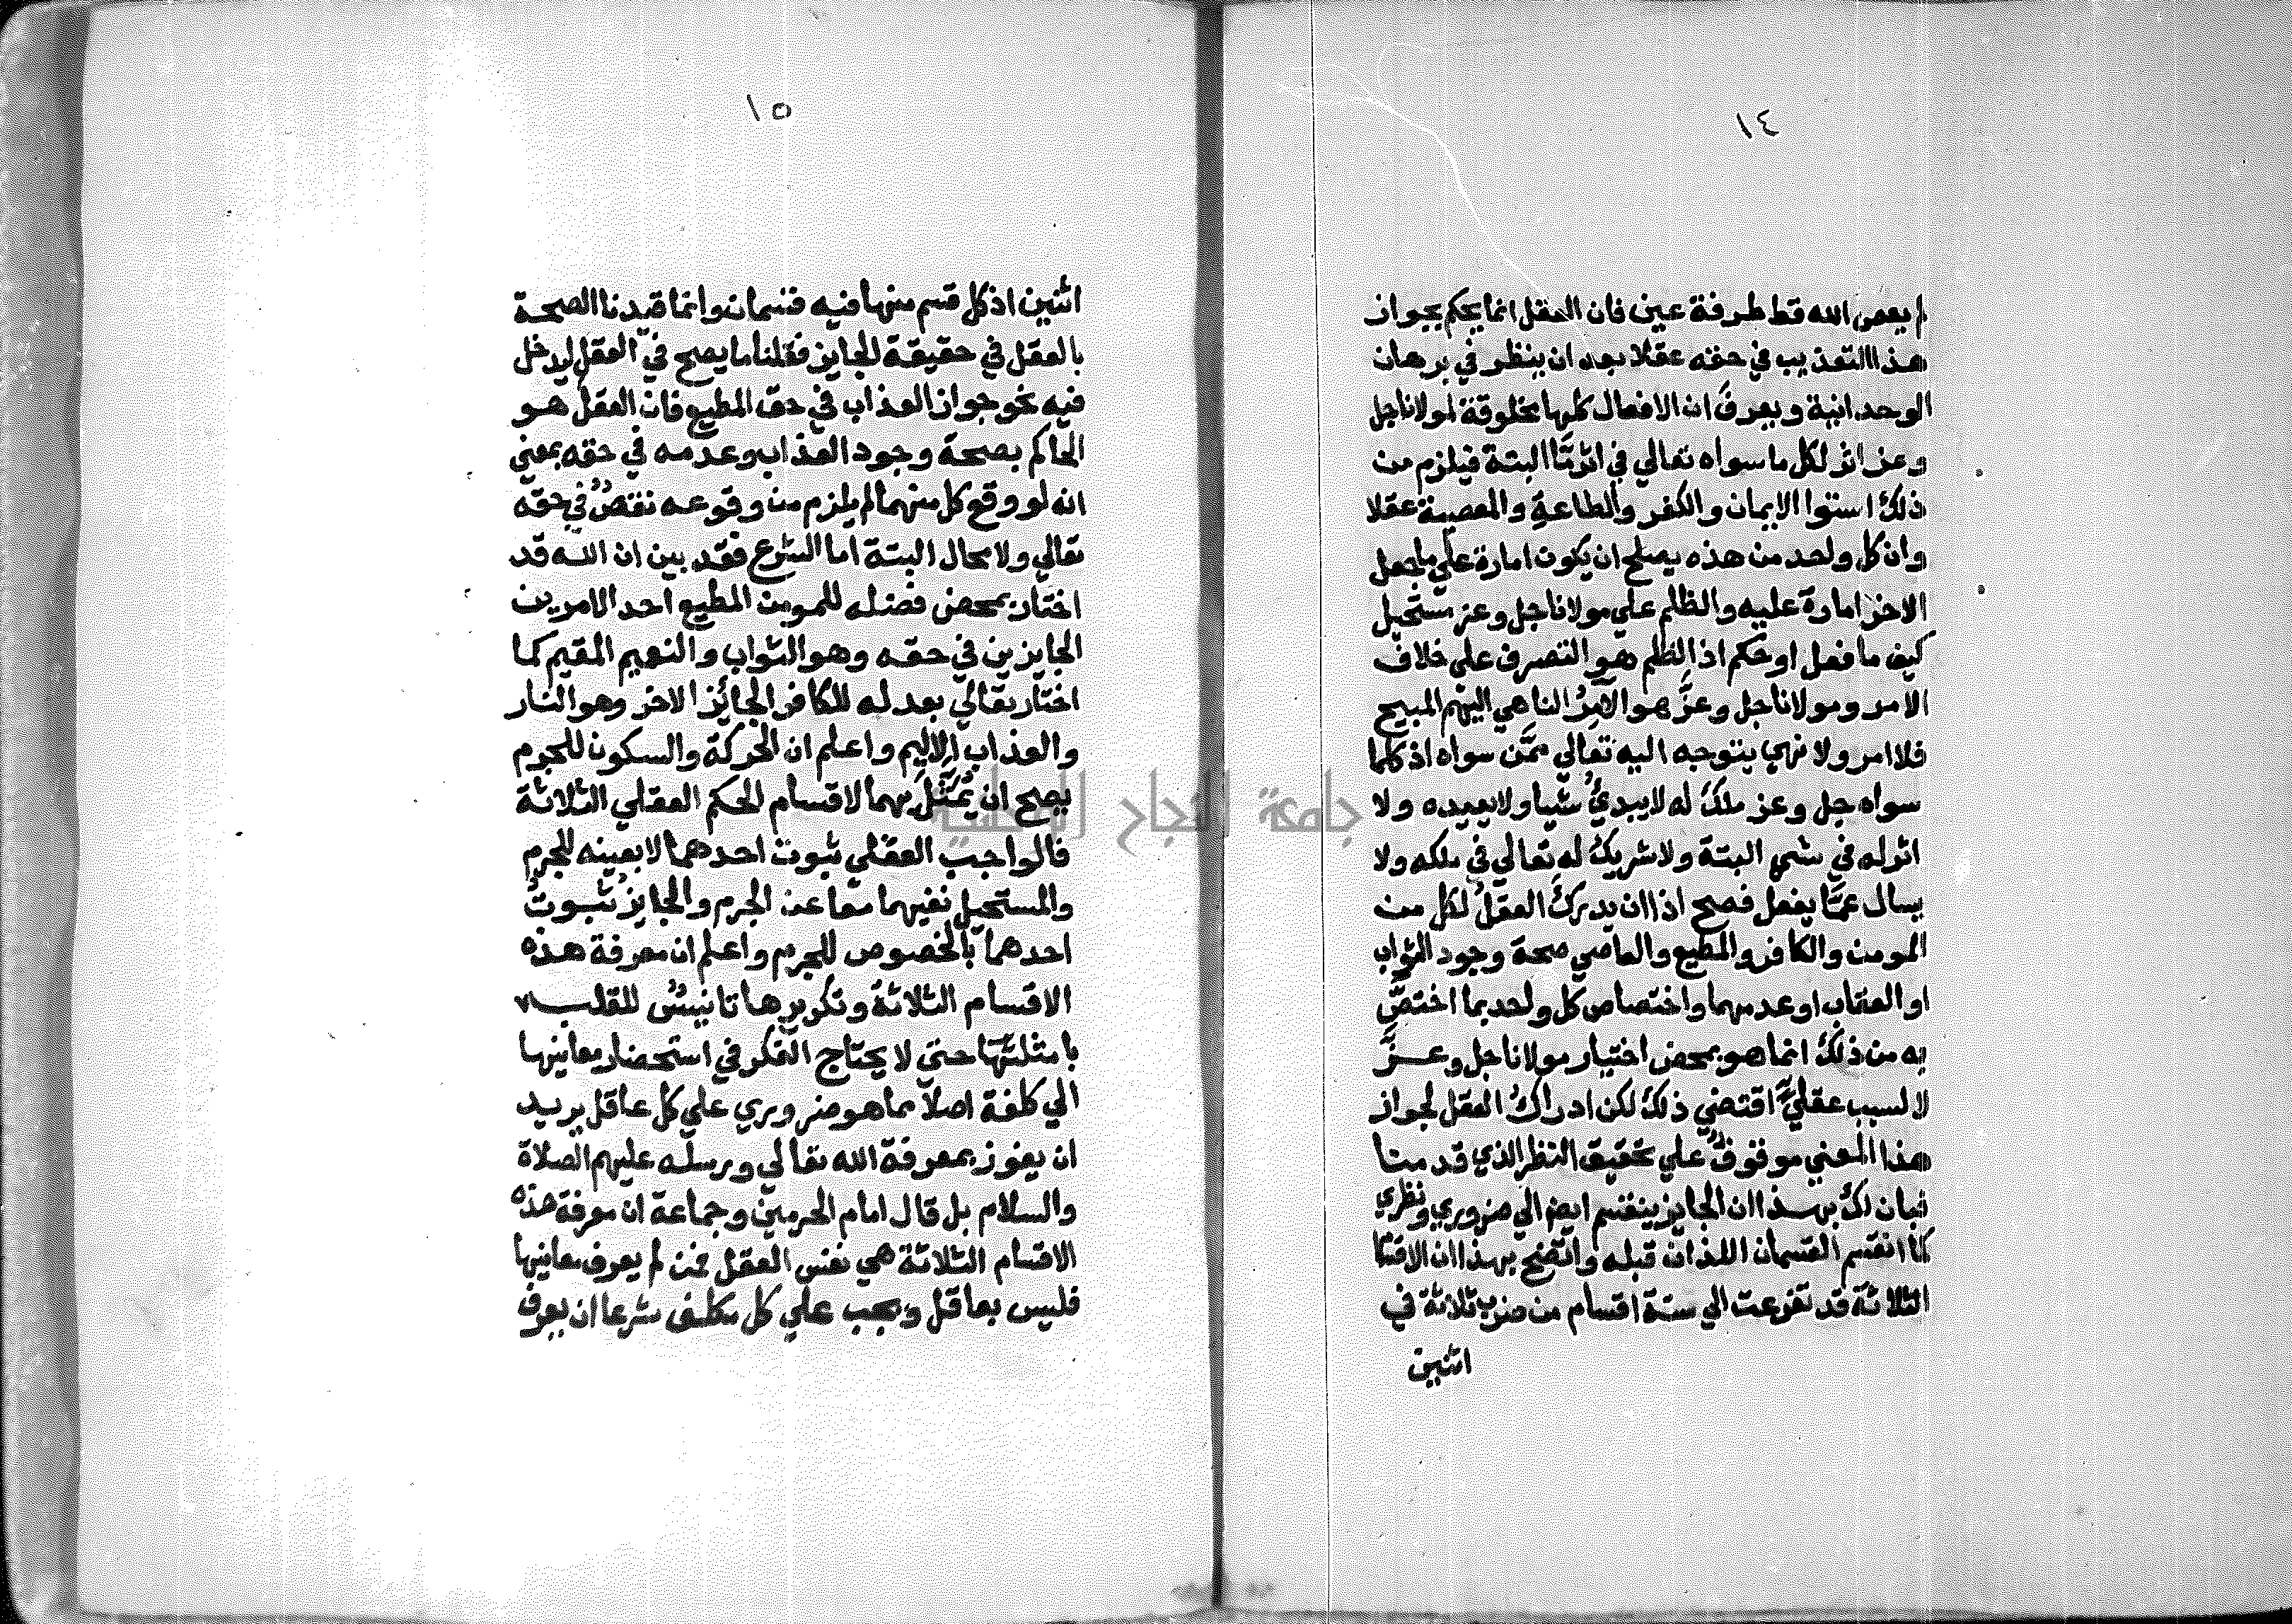 ١٤
لم يعص الله قط طرفة عين فان العقل انما يحكم بجواز
هذا التعذيب في حقه عقلا بعد ان ينظر في برهان
الوحدانية ويعرف ان الافعال كلها مخلوقة لمولانا جل
وعز لا اثر لكل ما سواه تعالي في اثرمّا البتة فيلزم من
ذلك استوا الايمان والكفر والطاعة والمعصية عقلا
وان كل واحد من هذه يصلح ان يكون امارة علي ما جعل
الاخر امارة عليه والظلم علي مولانا جل وعز مستحيل
كيف ما فعل او حكم اذ الظلم هو التصرف علي خلاف
الامر ومولانا جل وعزّ هو الآمِرُ الناهي المبيح
فلا امر ولا نهي يتوجه اليه تعالي ممّن سواه اذ كلما
سواه جل وعز ملكٌ له لا يبديُ شيا ولا يعيده ولا
اثر له في شي البتة ولا شريك له تعالي في ملكه ولا
يسال عمّا يفعل فصح اذا ان يدرك العقلُ لكل من
المومن والكافر والمطيع والعاصي صحة وجود الثواب
او العقاب او عدمهما واختصاص كل واحد بما اختصَّ
به من ذلك انما هو بمحض اختيار مولانا جل وعزَّ
لا لسبب عقليٍّ اقتضي ذلك لكن ادراكُ العقل لجواز
هذا المعني موقوفٌ علي تحقيق النظر الذي قدمنا
فبان لك بهذا ان الجايز ينقسم ايضا الي ضروري ونظري
كما انقسم القسمان اللذان قبله واتضح بهذا ان الاقسا
الثلاثة قد تفرعت الي ستة اقسام من ضرب ثلاثة في
اثنين
١٥
اثنين اذ كل قسم منها فيه قسمان وانما قيدنا الصحة
بالعقل في حقيقة الجايز فقلنا ما يصح في العقل ليدخل
فيه نحو جواز العذاب في حق المطيع فان العقل هو
الحاكم بصحة وجود العذاب وعدمه في حقه بمعني
انه لو وقع كل منهما لم يلزم من وقوعه نقصٌ في حقه
تعالي ولا محال البتة اما الشرع فقد بين ان الله قد
اختار بمحض فضله للمومن المطيع احد الامرين
الجايزين في حقه وهو الثواب والنعيم المقيم كما
اختار تعالي بعدله للكافر الجائز الاخر وهو النار
والعذاب الاليم واعلم ان الحركة والسكون للجرم
يصح ان يُمَثَّلَ بهما لاقسام الحكم العقلي الثلاثة
فالواجب العقلي ثبوت احدهما لا بعينه للجرم
والمستحيل نفيهما معا عن الجرم والجايز ثبوتُ
احدهما بالخصوص للجرم واعلم ان معرفة هذه
الاقسام الثلاثة وتكريرها تانيسٌ للقلب
بامثلتها حتي لا يحتاج الفكر في استحضار معانيها
الي كلفة اصلا مما هو ضروري علي كل عاقل يريد
ان يفوز بمعرفة الله تعالي ورسله عليهم الصلاة
والسلام بل قال امام الحرمين وجماعة ان معرفة هذه
الاقسام الثلاثة هي نفس العقل فمن لم يعرف معانيها
فليس بعاقل ويجب علي كل مكلف شرعا ان يعرف
جامعة النجاح الوطنية